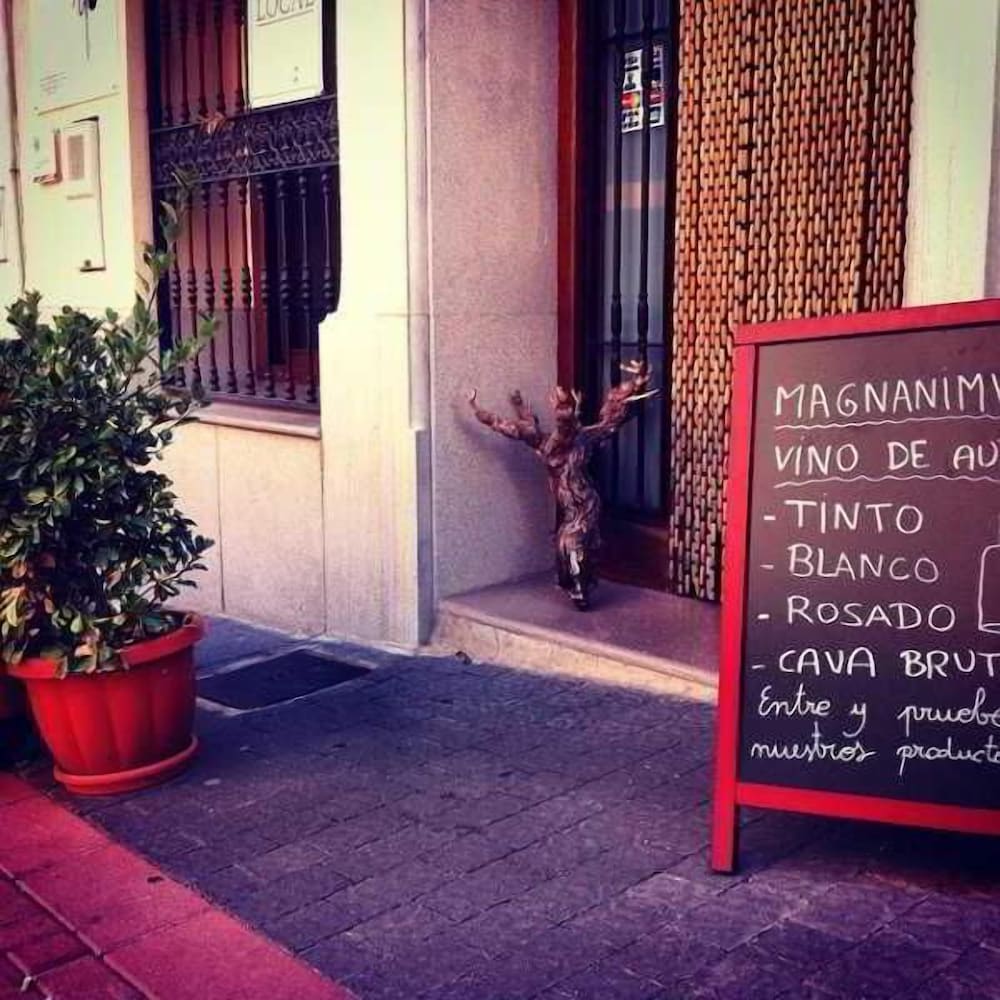 LOCAL
MAGNANIMV
VINO DE AU
- TINTO
- BLANCO
- ROSADO
- CAVA BRUT
Entre y prueb
nuestros product